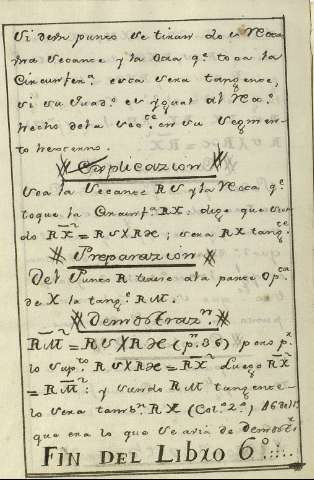 Si de un punto se tiran dos rectas
una secante y la otra q.e toca la
Circunfer.a esta sera tangente,
si su quad.o es ygual al Rea.o
hecho de la sec.te en su segmen-
to externo.
Explicazion
Sea la Secante RS y la recta q.e
toque la Circunf.a RX: digo que sien
do RX² = RS X RH; sera RX tang.te
Preparazion
Del Punto R tirese ala parte Op.ta
de X la tang.e RM.
Demostraz.n
RM² = RS X RH (p.n 36) pero p.r
lo sup.to RS X RH = RX² Luego RX²
= RM²: y siendo RM tangente
lo sera tamb.n RX (Col.o 2.o, 16 del
que era lo que se avia de Demost.r
FIN DEL LIBRO 6.o